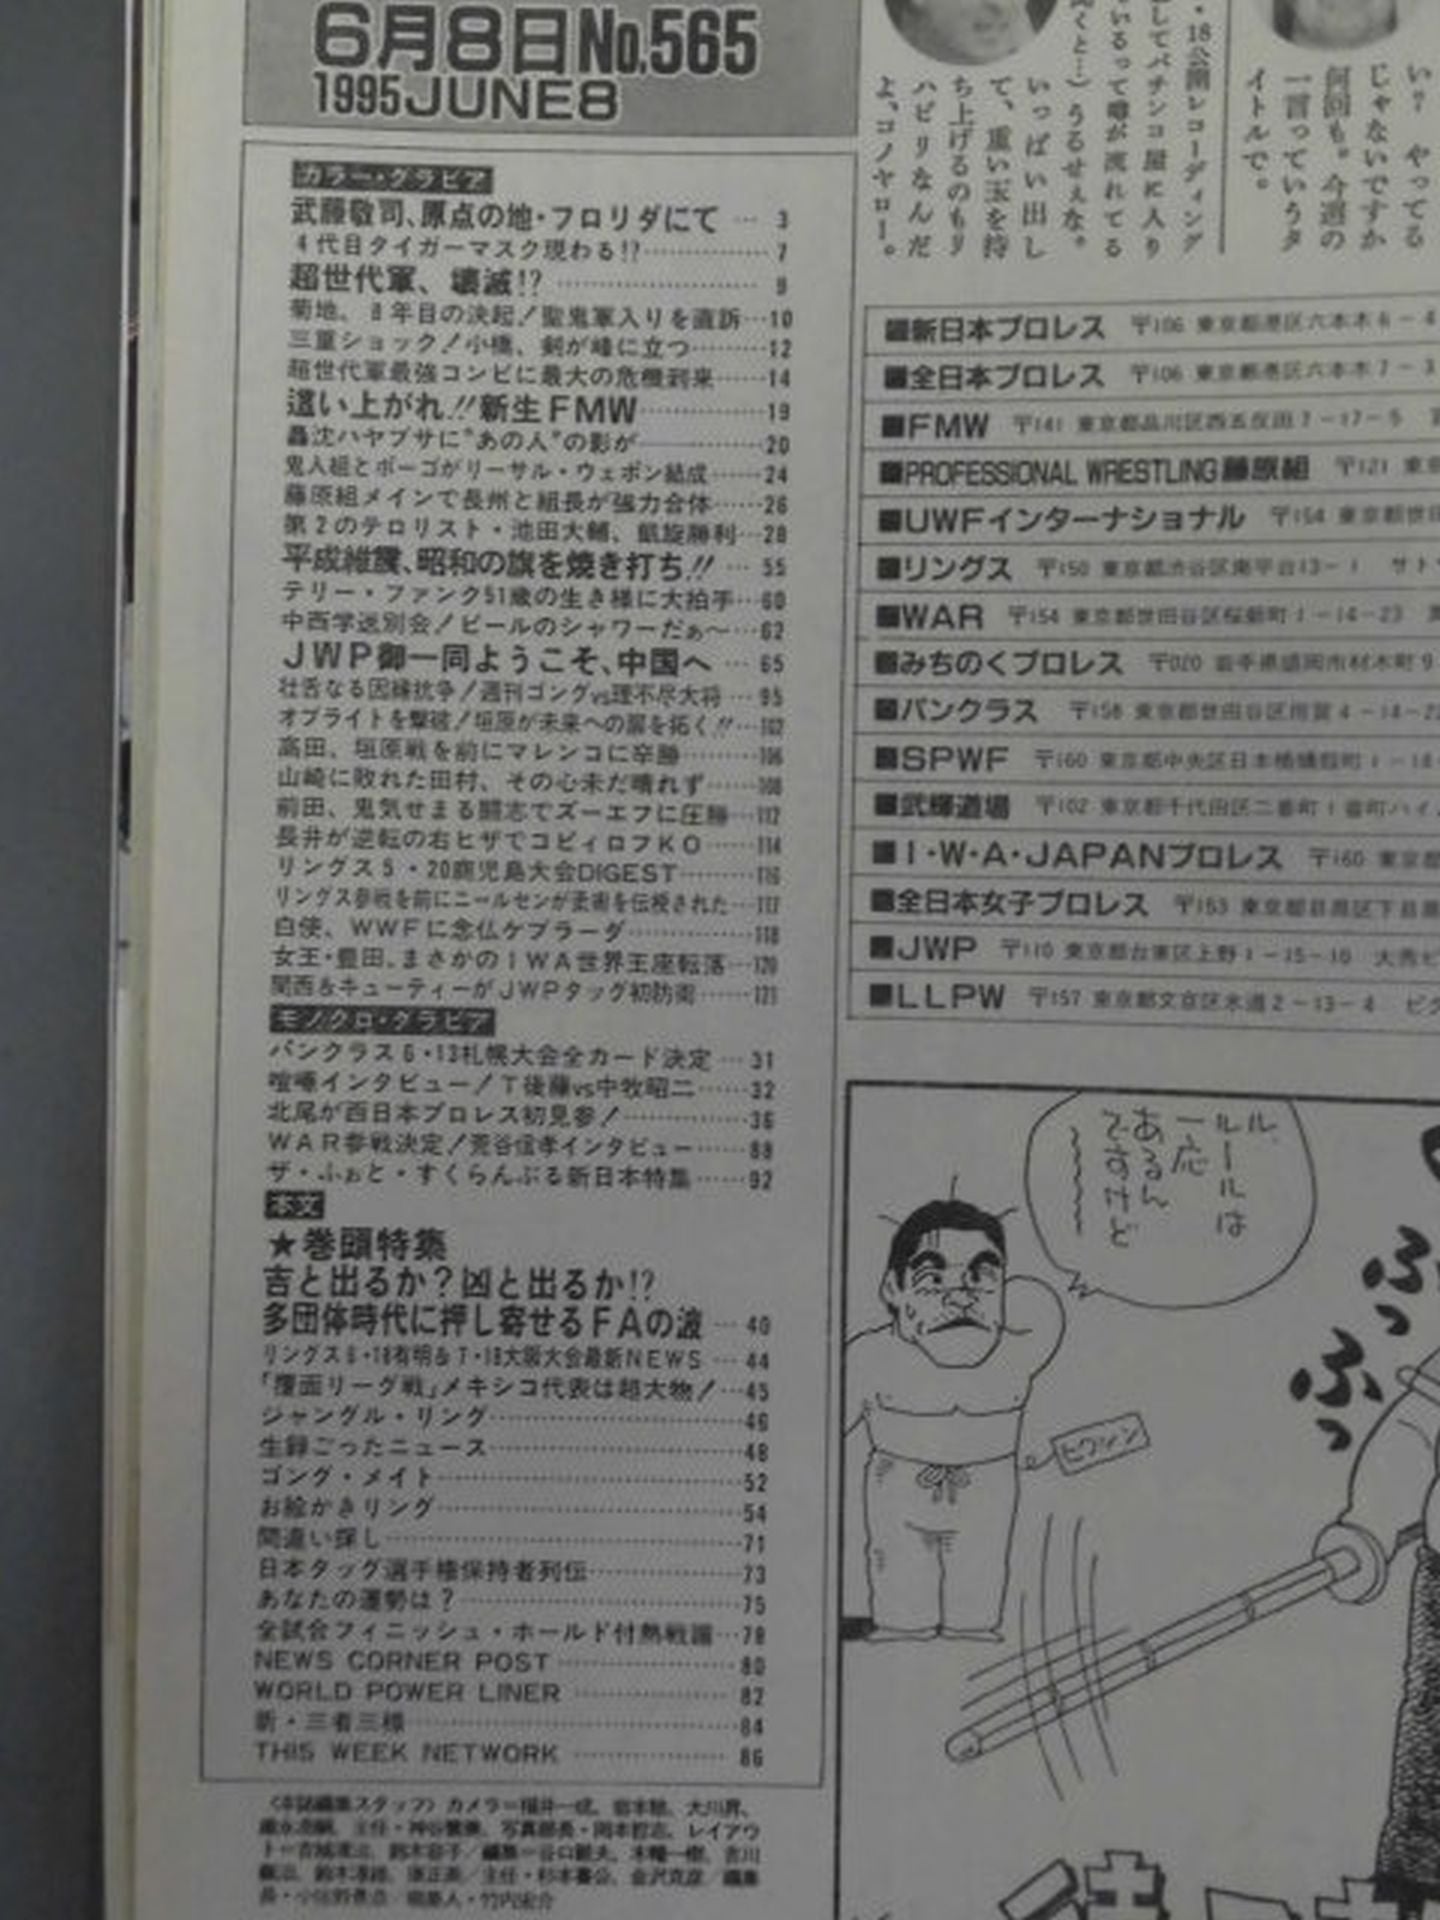 6月8日No.565
1995JUNE8
カラー・グラビア
武藤敬司、原点の地・フロリダにて … 3
4代目タイガーマスク現わる!?……………7
超世代軍、壊滅!? ……………… 9
菊地、8年目の決起!聖鬼軍入りを直訴…10
三重ショック!小橋、剣が峰に立つ………12
超世代軍最強コンビに最大の危機到来……14
這い上がれ!!新生FMW……………19
轟沈ハヤブサに“あの人”の影が……………20
鬼人組とポーゴがリーサル・ウェポン結成……24
藤原組メインで長州と組長が強力合体……26
第2のテロリスト・池田大輔、凱旋勝利…28
平成維震、昭和の旗を焼き打ち!! … 55
テリー・ファンク51歳の生き様に大拍手…60
中西学送別会!ビールのシャワーだぁ〜…62
JWP御一同ようこそ、中国へ … 65
壮舌なる因縁抗争!週刊ゴングvs理不尽大将 … 95
オブライトを撃破!垣原が未来への扉を拓く!!…102
高田、垣原戦を前にマレンコに辛勝………106
山崎に敗れた田村、その心未だ晴れず……108
前田、鬼気せまる闘志でズーエフに圧勝…112
長井が逆転の右ヒザでコピィロフKO……114
リングス5・20鹿児島大会DIGEST………116
リングス参戦を前にニールセンが柔術を伝授された…117
白使、WWFに念仏ケブラーダ……………118
女王・豊田、まさかのIWA世界王座転落…120
関西&キューティーがJWPタッグ初防衛……121
モノクロ・グラビア
パンクラス6・13札幌大会全カード決定 … 31
喧嘩インタビュー!T後藤vs中牧昭二……32
北尾が西日本プロレス初見参!……………36
WAR参戦決定!荒谷信孝インタビュー……88
ザ・ふぉと・すくらんぶる新日本特集……92
本文
★巻頭特集
吉と出るか?凶と出るか!?
多団体時代に押し寄せるFAの波 … 40
リングス6・18有明&7・18大阪大会最新NEWS … 44
「覆面リーグ戦」メキシコ代表は超大物!…45
ジャングル・リング……………………46
生録ごったニュース……………………48
ゴング・メイト…………………………52
お絵かきリング…………………………54
間違い探し………………………………71
日本タッグ選手権保持者列伝……………73
あなたの運勢は?………………………75
全試合フィニッシュ・ホールド付熱戦譜…78
NEWS CORNER POST ……………… 80
WORLD POWER LINER …………… 82
新・三者三様……………………………84
THIS WEEK NETWORK …………… 86
・18公開レコーディング
してパチンコ屋に入り
いるって噂が流れてる
聞くと…)うるせぇな。
いっぱい出し
て、重い玉を持
ち上げるのもリ
ハビリなんだ
よ、コノヤロー。
い? やってる
じゃないですか
何回も。今週の
一言っていうタ
イトルで。
■新日本プロレス 〒106 東京都港区六本木6-4
■全日本プロレス 〒106 東京都港区六本木7-3
■FMW 〒141 東京都品川区西五反田7-17-5
■PROFESSIONAL WRESTLING藤原組 〒121 東京
■UWFインターナショナル 〒154 東京都世田
■リングス 〒150 東京都渋谷区南平台13-1 サト
■WAR 〒154 東京都世田谷区桜新町1-14-23
■みちのくプロレス 〒020 岩手県盛岡市材木町9
■パンクラス 〒158 東京都世田谷区用賀4-14-2
■SPWF 〒160 東京都中央区日本橋蛎殻町1-18
■武輝道場 〒102 東京都千代田区二番町1番町ハイ
■I・W・A・JAPANプロレス 〒160 東京都
■全日本女子プロレス 〒153 東京都目黒区下目黒
■JWP 〒110 東京都台東区上野1-15-10 大秀ビ
■LLPW 〒157 東京都文京区水道2-13-4 ビク
ル、
ルールは
一応
あるん
ですけど
ふっ
ふっ
ビクソン